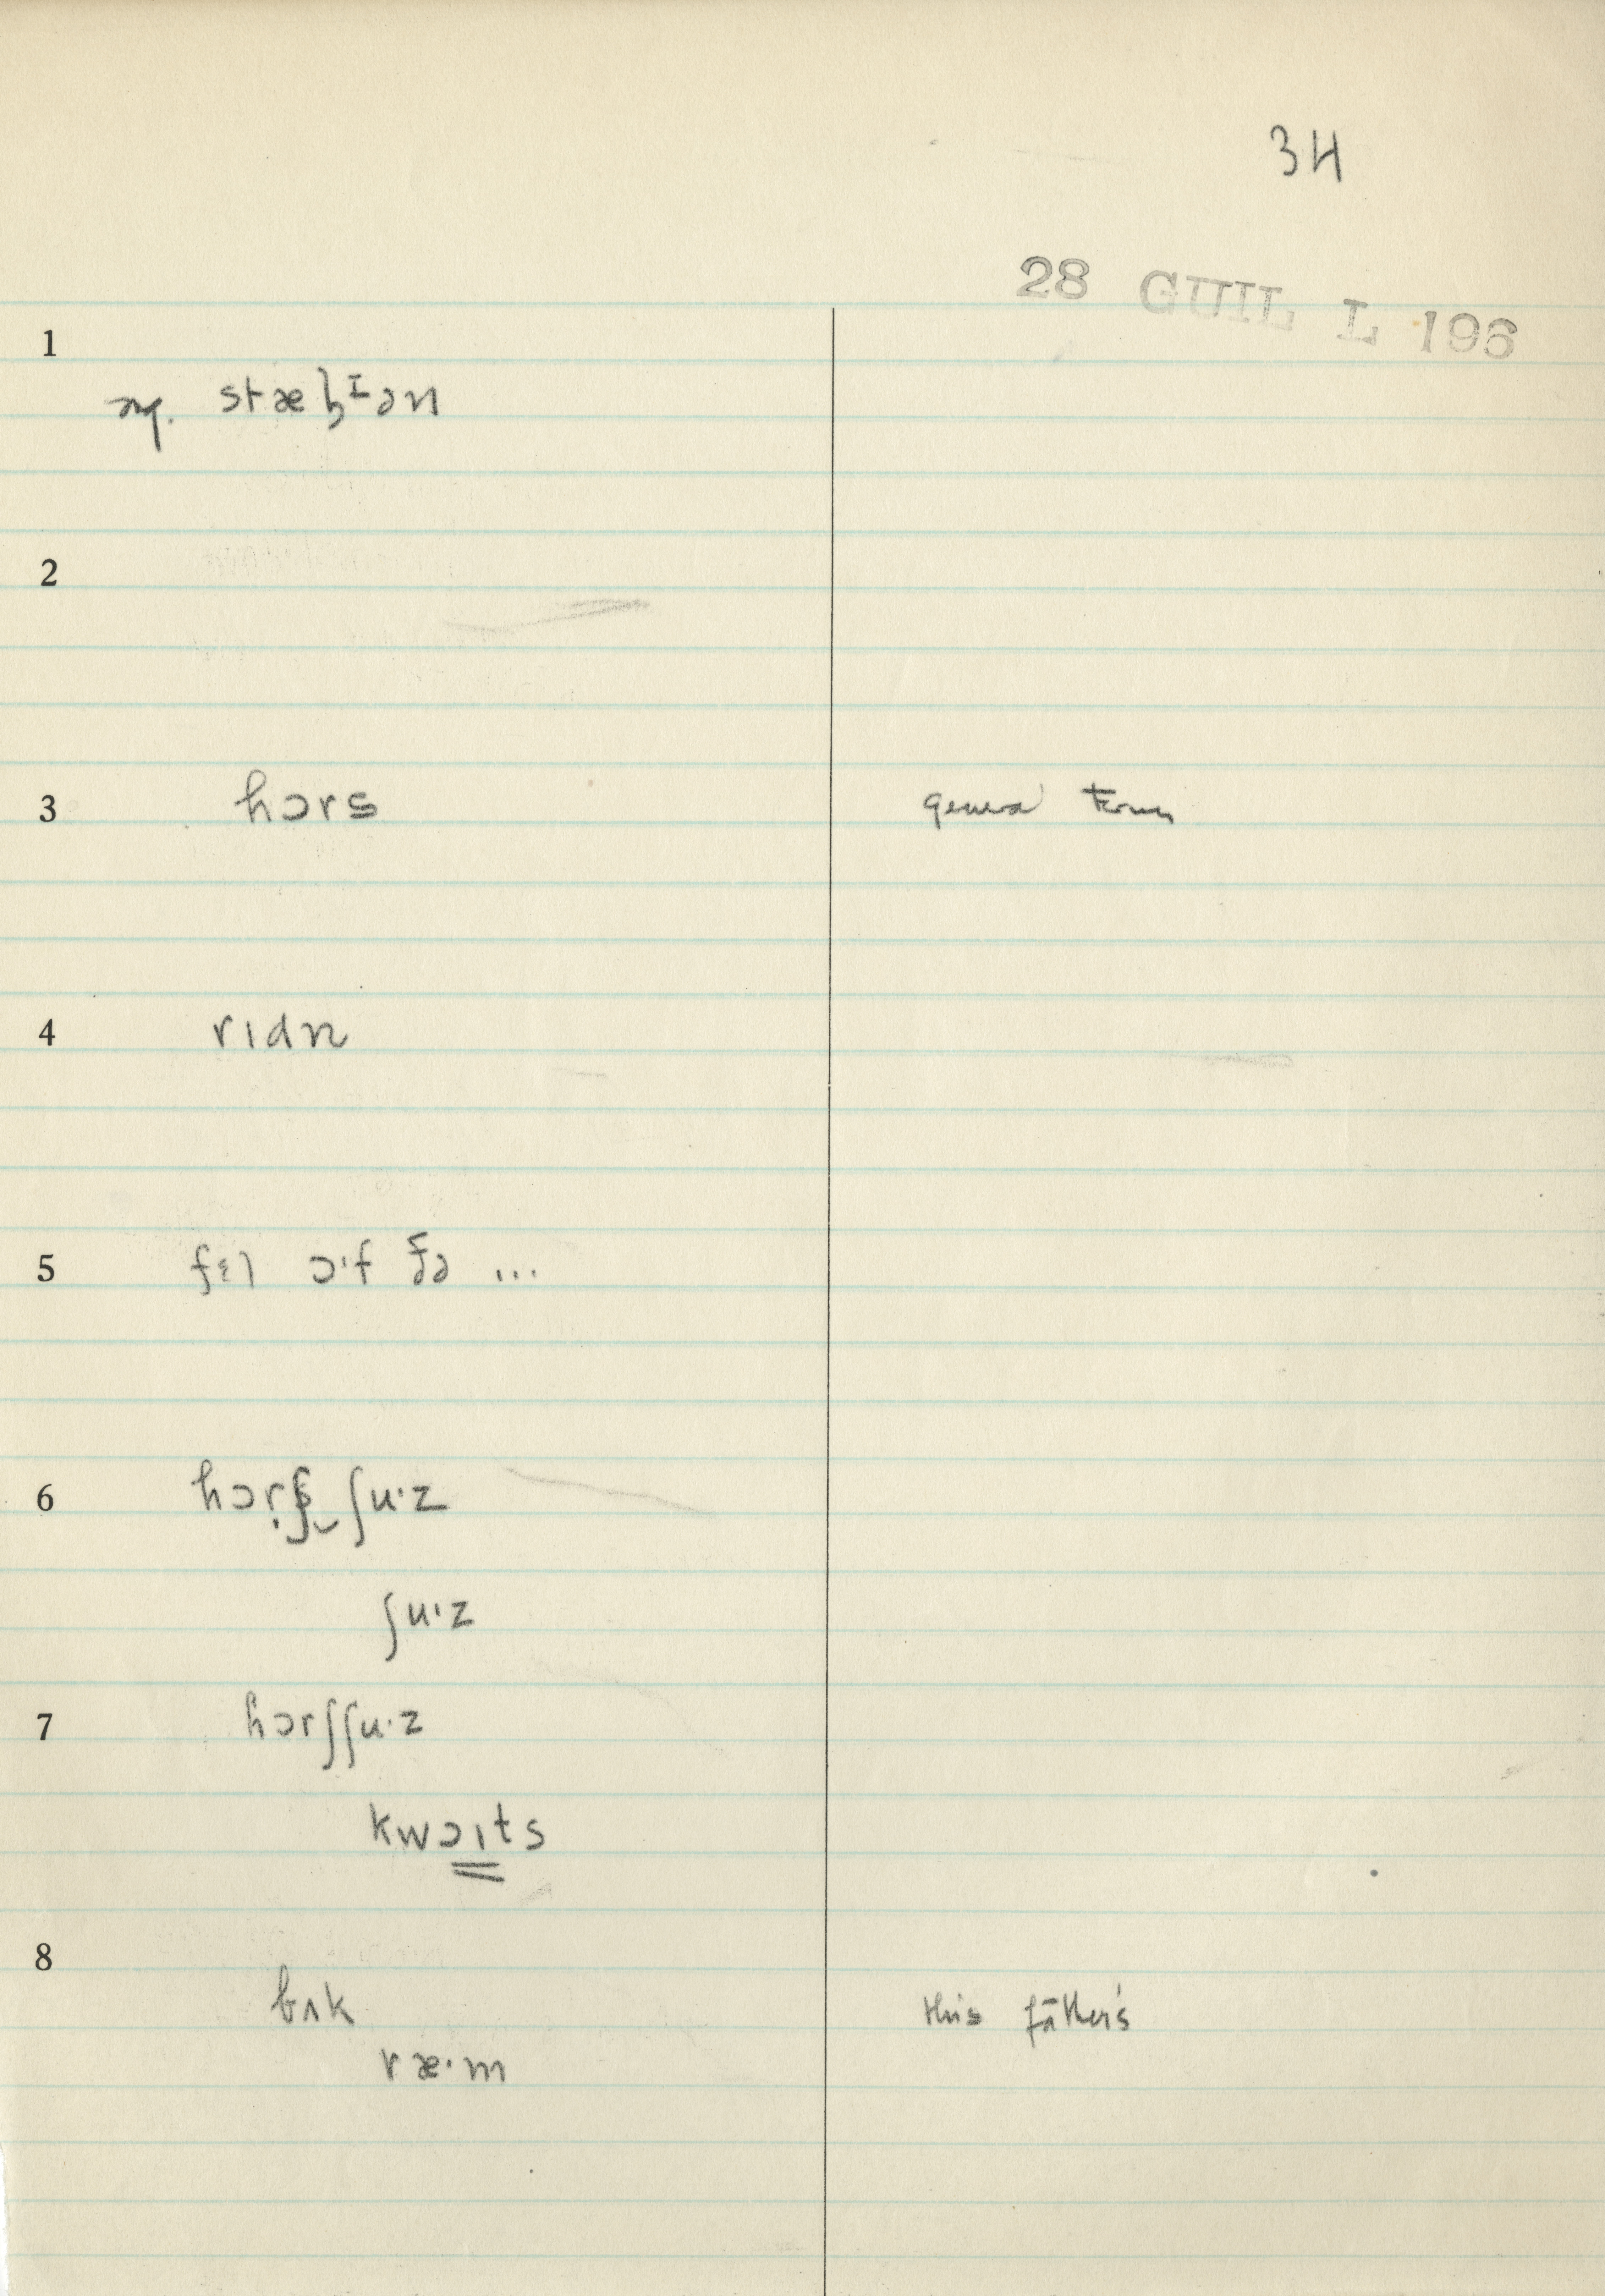 34
28 GUIL L 196
1
stæɮᶦən
2
3 hɔrs
4 rɪdn
5 fɛl ɔ·f ðə ...
6 hɔrʃ‿ʃu·z
ʃu·z
7 hɔrʃʃu·z
kwɔɪts
8
bʌk this fāther's
ræ·m